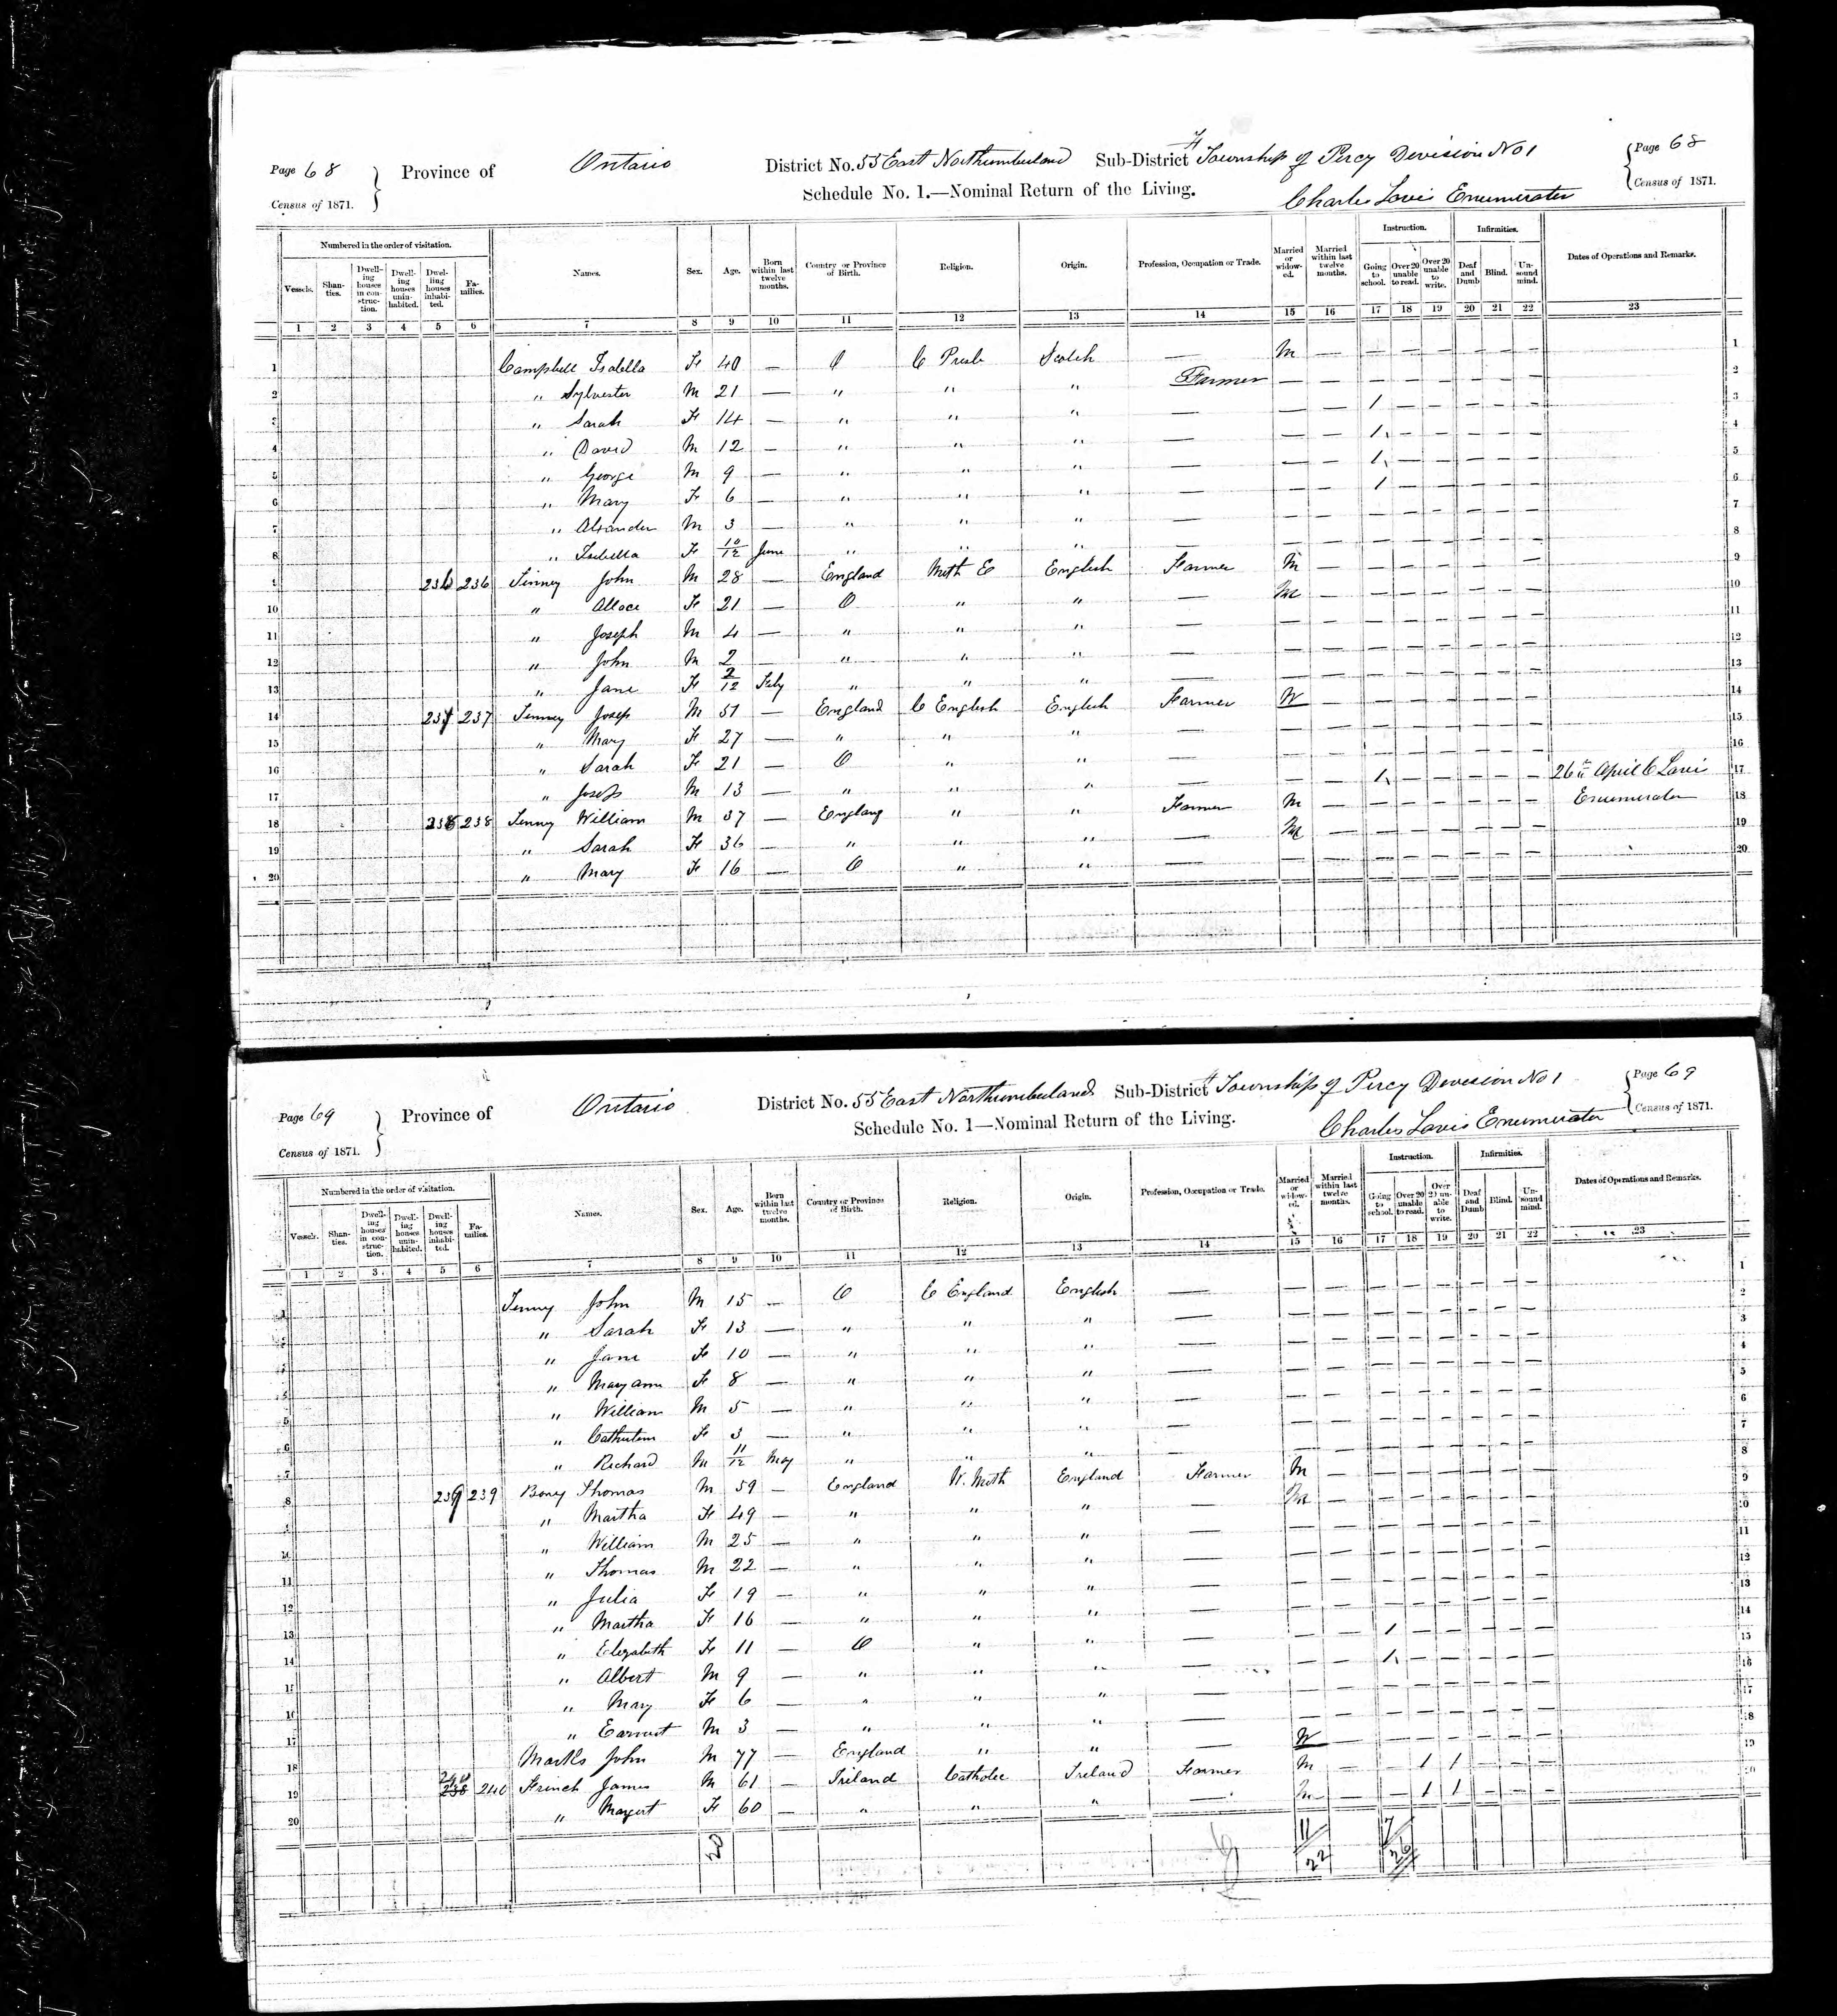 Page 68
Census of 1871.
Province of Ontario
District No. 55 East Northumberland Sub-District H Township of Percy Devision No 1
Schedule No. 1.—Nominal Return of the Living.
Charles Lovis Enumerater
Page 68
Census of 1871.
Numbered in the order of visitation. Instruction. Infirmities.
Vessels. Shan-ties. Dwell-ing houses in con-struc-tion. Dwell-ing houses unin-habited. Dwel-ling houses inhabi-ted. Fa-milies. Names. Sex. Age. Born within last twelve months. Country or Province of Birth. Religion. Origin. Profession, Occupation or Trade. Married or widow-ed. Married within last twelve months. Going to school. Over 20 unable to read. Over 20 unable to write. Deaf and Dumb Blind. Un-sound mind. Dates of Operations and Remarks.
1 2 3 4 5 6 7 8 9 10 11 12 13 14 15 16 17 18 19 20 21 22 23
1 Campbell Isabella F 40 — O C Presb Scotch — M — — — — — — — 1
2 " Sylvester M 21 — " " " Farmer — — — — — — — — 2
3 " Sarah F 14 — " " " — — — 1 — — — — — 3
4 " David M 12 — " " " — — — 1 — — — — — 4
5 " George M 9 — " " " — — — 1 — — — — — 5
6 " Mary F 6 — " " " — — — 1 — — — — — 6
7 " Alxander M 3 — " " " — — — — — — — — — 7
8 " Isabella F 10/12 June " " " — — — — — — — — — 8
9 236 236 Tinney John M 28 — England Meth E English Farmer M — — — — — — — 9
10 " Allace F 21 — O " " — M — — — — — — — 10
11 " Joseph M 4 — " " " — — — — — — — — — 11
12 " John M 2 — " " " — — — — — — — — — 12
13 " Jane F 2/12 Feby " " " — — — — — — — — — 13
14 237 237 Tinney Josep M 51 — England C English English Farmer W — — — — — — — 14
15 " Mary F 27 — " " " — — — — — — — — — 15
16 " Sarah F 21 — O " " — — — — — — — — — 16
17 " Joseph M 13 — " " " — — — 1 — — — — — 26th April C Lovis 17
18 238 238 Tenny William M 37 — England " " Farmer M — — — — — — — Enumerater 18
19 " Sarah F 36 — " " " — M — — — — — — — 19
20 " Mary F 16 — O " " — — — — — — — — — 20
Page 69
Census of 1871.
Province of Ontario
District No. 55 East Northumberland Sub-District H Township of Percy Devision No 1
Schedule No. 1—Nominal Return of the Living.
Charles Lovis Enumerater
Page 69
Census of 1871.
Numbered in the order of visitation. Instruction. Infirmities.
Vessels. Shan-ties. Dwell-ing houses in con-struc-tion. Dwell-ing houses unin-habited. Dwell-ing houses inhabi-ted. Fa-milies. Names. Sex. Age. Born within last twelve months. Country or Province of Birth. Religion. Origin. Profession, Occupation or Trade. Married or widow-ed. Married within last twelve months. Going to school. Over 20 unable to read. Over 20 un-able to write. Deaf and Dumb Blind. Un-sound mind. Dates of Operations and Remarks.
1 2 3 4 5 6 7 8 9 10 11 12 13 14 15 16 17 18 19 20 21 22 23
1 Tenny John M 15 — O C England English — — — — — — — — — 1
2 " Sarah F 13 — " " " — — — — — — — — — 2
3 " Jane F 10 — " " " — — — — — — — — — 3
4 " Mary ann F 8 — " " " — — — — — — — — — 4
5 " William M 5 — " " " — — — — — — — — — 5
6 " F 3 — " " " — — — — — — — — — 6
7 " Richard M 11/12 May " " " — — — — — — — — — 7
8 239 239 Bony Thomas M 59 — England W. Meth England Farmer M — — — — — — — 8
9 " Martha F 49 — " " " — M — — — — — — — 9
10 " William M 25 — " " " — — — — — — — — — 10
11 " Thomas M 22 — " " " — — — — — — — — — 11
12 " Julia F 19 — " " " — — — — — — — — — 12
13 " Martha F 16 — " " " — — — — — — — — — 13
14 " Elizabeth F 11 — O " " — — — 1 — — — — — 14
15 " Albert M 9 — " " " — — — 1 — — — — — 15
16 " Mary F 6 — " " " — — — — — — — — — 16
17 " Earnest M 3 — " " " — — — — — — — — — 17
18 Marks John M 77 — England " " — W — — — — — — — 18
19 240 238 240 French James M 61 — Ireland Catholic Ireland Farmer M — — 1 1 — — — 19
20 " Margert F 60 — " " " — M — — 1 1 — — — 20
20 11/22 7/26